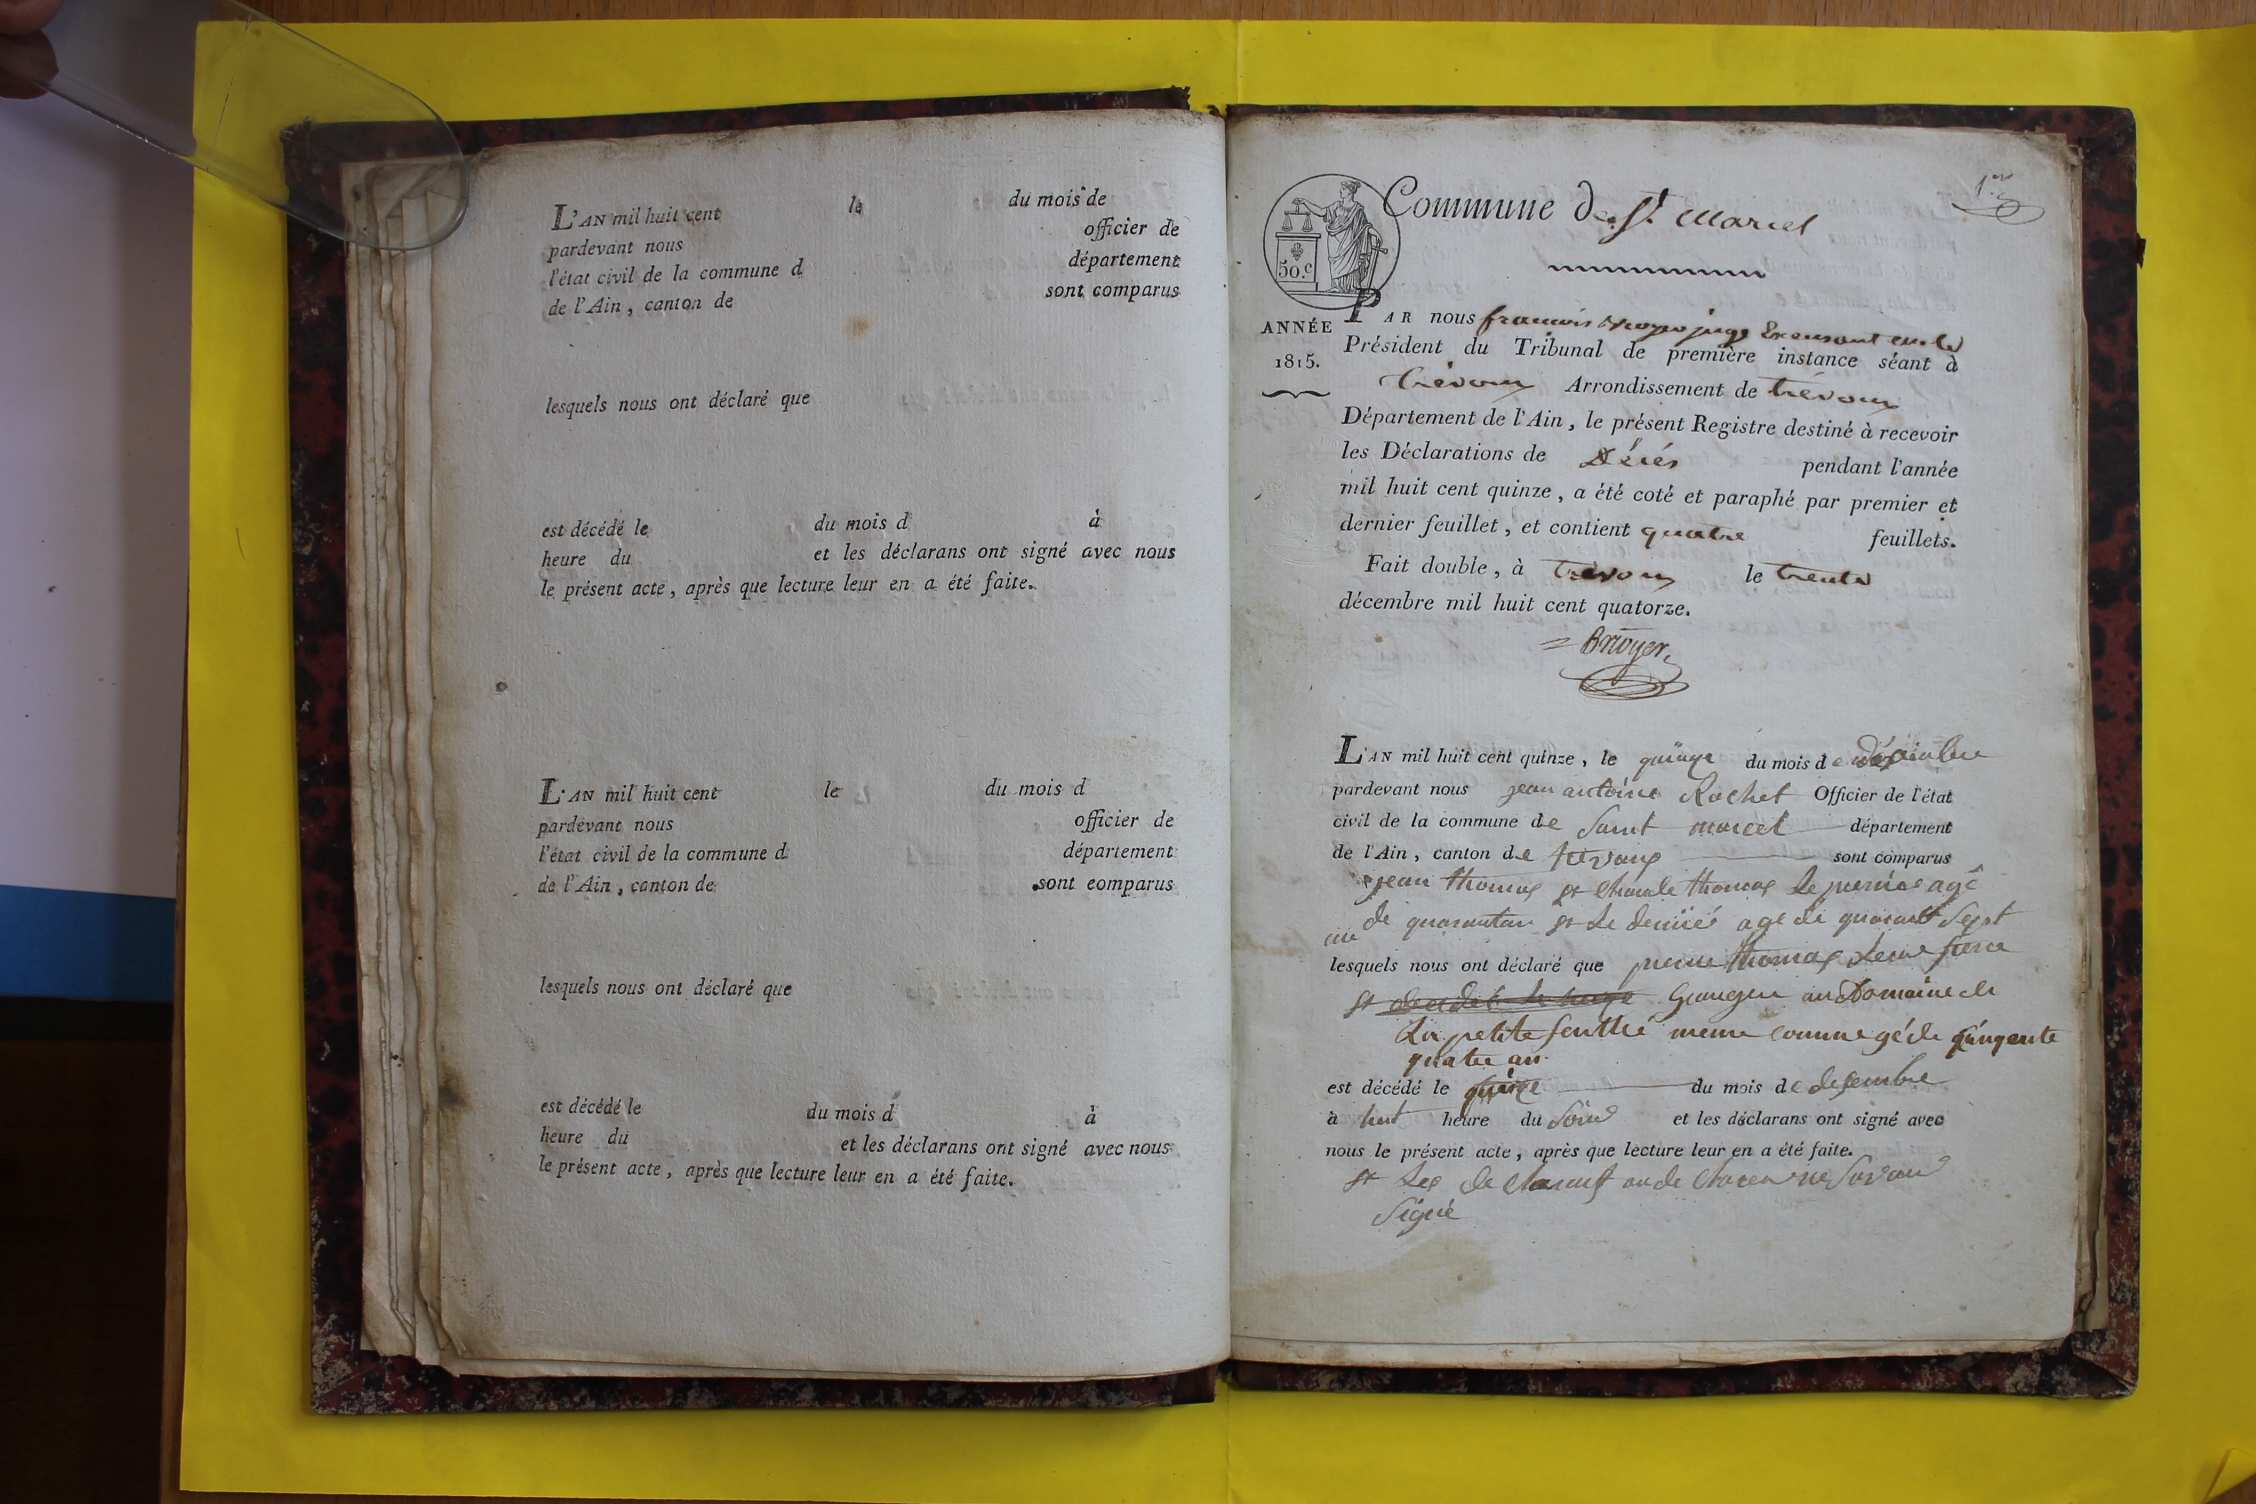 L'AN mil huit cent le du mois de
pardevant nous officier de
l'état civil de la commune d département
de l'Ain, canton de sont comparus
lesquels nous ont déclaré que
est décédé le du mois d à
heure du et les déclarans ont signé avec nous
le présent acte, après que lecture leur en a été faite.
L'AN mil huit cent le du mois d
pardevant nous officier de
l'état civil de la commune d département
de l'Ain, canton de sont comparus
lesquels nous ont déclaré que
est décédé le du mois d à
heure du et les déclarans ont signé avec nous
le présent acte, après que lecture leur en a été faite.
1.er
50.c
Commune De St marcel
ANNÉE
1815.
PAR nous francois juge
Président du Tribunal de première instance séant à
trévoux Arrondissement de trévoux
Département de l'Ain, le présent Registre destiné à recevoir
les Déclarations de Décés pendant l'année
mil huit cent quinze, a été coté et paraphé par premier et
dernier feuillet, et contient quatre feuillets.
Fait double, à trévoux le trente
décembre mil huit cent quatorze.
L'AN mil huit cent quinze, le quinze du mois de
pardevant nous jean antoine Rochet Officier de l'état
civil de la commune de Saint marcel département
de l'Ain, canton de trevoux sont comparus
jean thomas et thomas le agé
de et le age de Sept
lesquels nous ont déclaré que thomas
et au Domaine de
La petite meme
quatre an
est décédé le quinze du mois de desembre
à huit heure du Soir et les déclarans ont signé avec
nous le présent acte, après que lecture leur en a été faite.
et Les
Signé